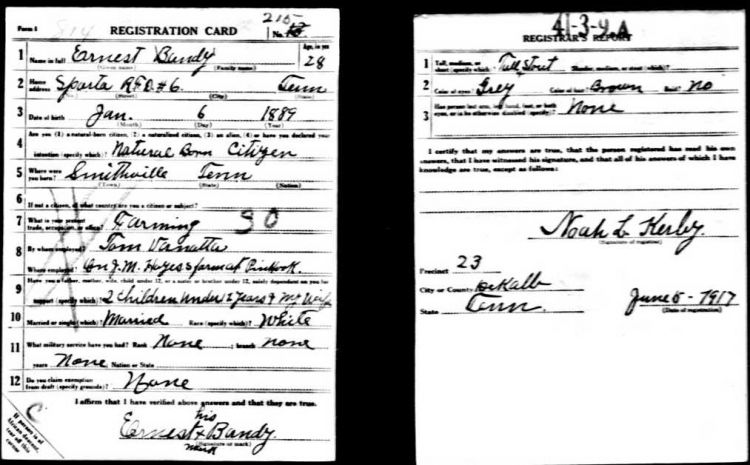 Form 1
REGISTRATION CARD
215
No. 13
1 Name in full Ernest Bandy Age, in yrs 28
(Given name) (Family name)
2 Home address Sparta RFD #6 Tenn
(No.) (Street) (City) (State)
3 Date of birth Jan. 6 1889
(Month) (Day) (Year)
4 Are you (1) a natural-born citizen, (2) a naturalized citizen, (3) an alien, (4) or have you declared your
intention (specify which)? Natural Born Citizen
5 Where were you born? Smithville Tenn
(Town) (State) (Nation)
6 If not a citizen, of what country are you a citizen or subject?
7 What is your present trade, occupation, or office? Farming
8 By whom employed? Tom Vanatta
Where employed? On J.M. Hayes's farm at
9 Have you a father, mother, wife, child under 12, or a sister or brother under 12, solely dependent on you for
support (specify which)? 2 children under 2 years & my Wife
10 Married or single (which)? Married Race (specify which)? White
11 What military service have you had? Rank None ; branch none
years None ; Nation or State
12 Do you claim exemption from draft (specify grounds)? None
I affirm that I have verified above answers and that they are true.
his
Ernest x Bandy.
(Signature or mark)
mark
If person is of
African descent,
tear off this
corner
41-3-9.A
REGISTRAR'S REPORT
1 Tall, medium, or short (specify which)? Tall Slender, medium, or stout (which)? Stout
2 Color of eyes? Grey Color of hair? Brown Bald? No
3 Has person lost arm, leg, hand, foot, or both
eyes, or is he otherwise disabled (specify)? None
I certify that my answers are true, that the person registered has read his own
answers, that I have witnessed his signature, and that all of his answers of which I have
knowledge are true, except as follows:
Noah L Kerby.
(Signature of registrar)
Precinct 23
City or County DeKalb
State Tenn.
June 5 - 1917
(Date of registration)